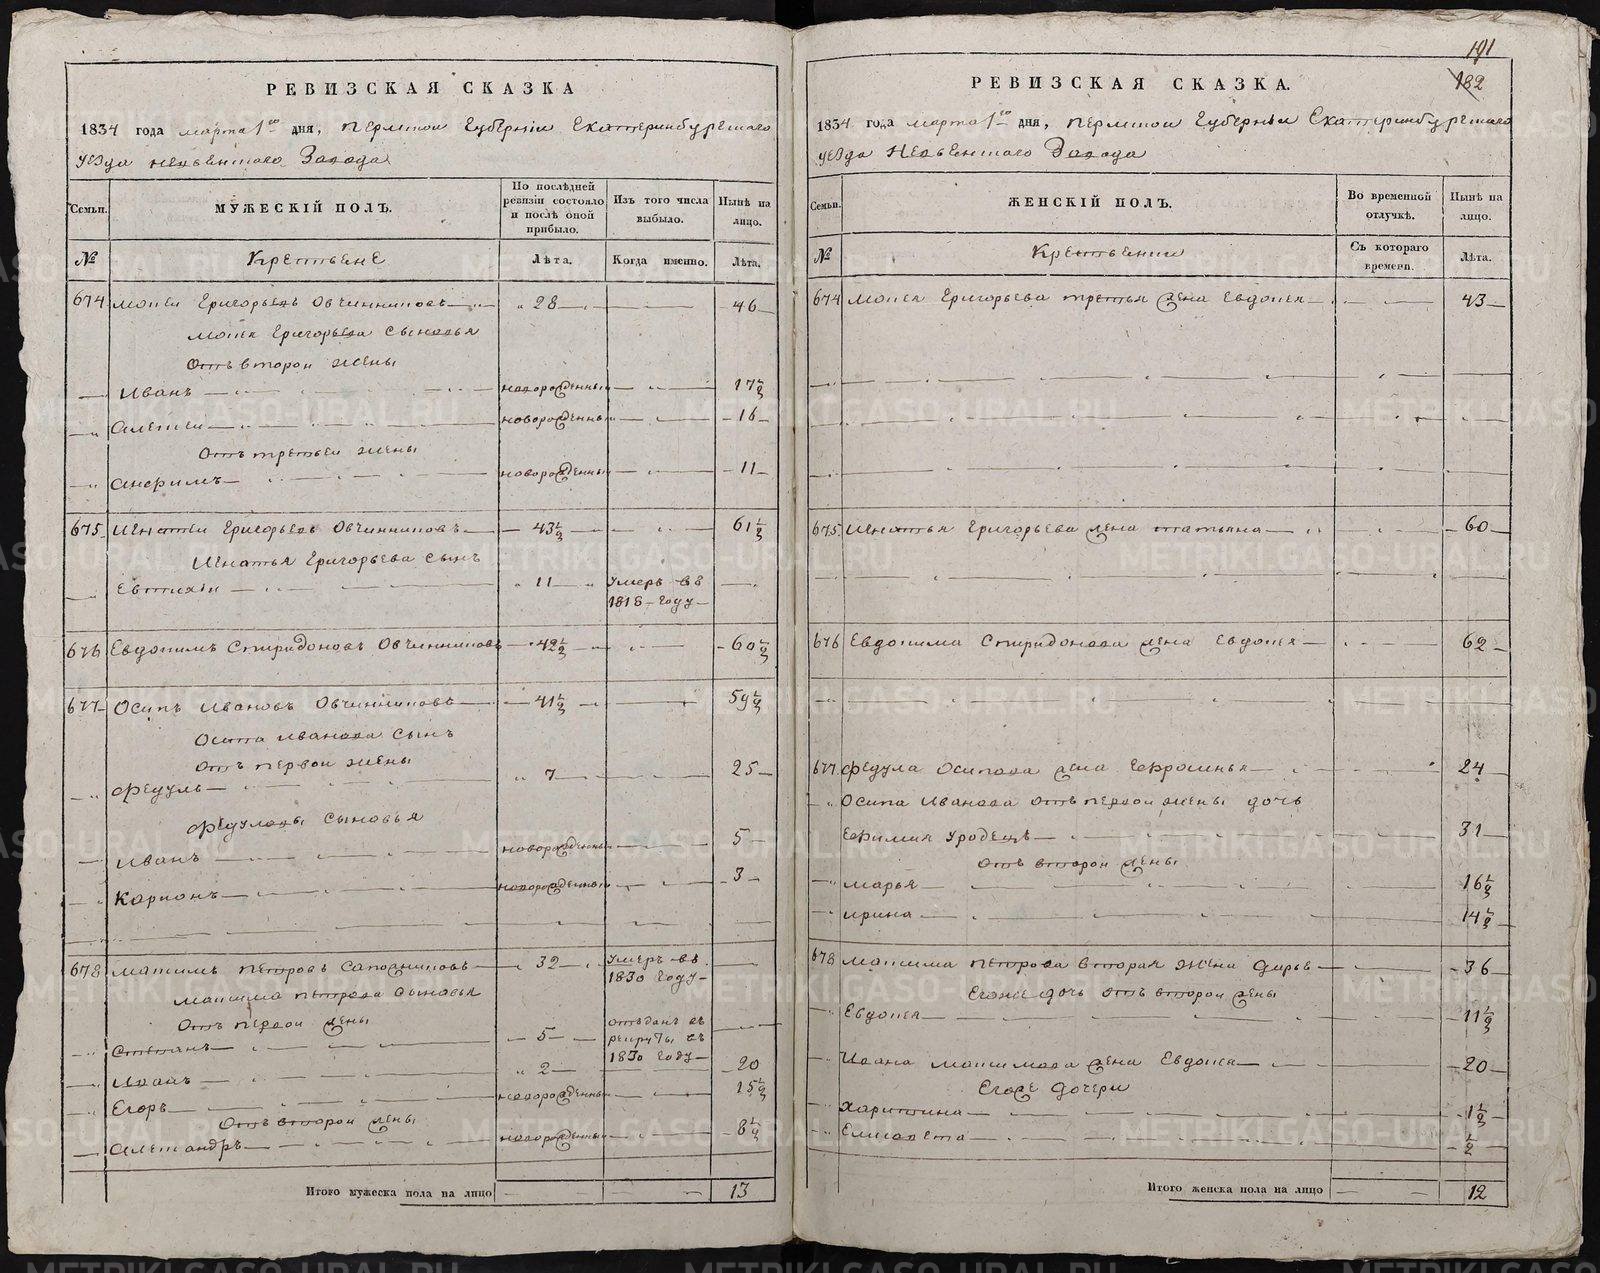 РЕВИЗСКАЯ СКАЗКА
1834 года марта 1го дня, Пермской Губерніи Екатеринбургского
уезда Невьянского Завода
Семьи. МУЖЕСКІЙ ПОЛЪ. По послѣдней ревизіи состояло и послѣ оной прибыло. Изъ того числа выбыло. Нынѣ на лицо.
№ Крестьяне Лѣта. Когда именно. Лѣта.
674 Мокей Григорьевъ Овчинниковъ 28 46
Мокея Григорьева сыновья
Отъ второй жены
Иванъ новорожденный 17 1/2
Алексей новорожденный 16
Отъ третьей жены
Анфимъ новорожденный 11
675 Игнатей Григорьевъ Овчинниковъ 43 1/2 61 1/2
Игнатья Григорьева сынъ
Евтихей 11 умеръ въ
1818 году
676 Евдокимъ Спиридоновъ Овчинниковъ 42 1/2 60 1/2
677 Осипъ Ивановъ Овчинниковъ 41 1/2 59 1/2
Осипа Иванова сынъ
Отъ первой жены
Федулъ 7 25
Федуловы сыновья
Иванъ новорожденный 5
Карпонъ новорожденный 3
678 Максимъ Петровъ Сапожниковъ 32 умеръ въ
1830 году
Максима Петрова сыновья
Отъ первой жены
Степанъ 5 отъданъ въ
рекруты въ
1830 году
Иванъ 2 20
Егоръ новорожденный 15 1/2
Отъ второй жены
Александръ новорожденный 8 1/2
Итого мужеска пола на лицо 13
191
182
РЕВИЗСКАЯ СКАЗКА.
1834 года марта 1го дня, Пермской Губерньи Екатеринбургского
уезда Невьянского Завода
Семьи. ЖЕНСКІЙ ПОЛЪ. Во временной отлучкѣ. Нынѣ на лицо.
№ Крестьянки Съ котораго времени. Лѣта.
674 Мокея Григорьева третья жена Евдокея 43
675 Игнатья Григорьева жена Татьяна 60
676 Евдокима Спиридонова жена Евдокея 62
677 Федула Осипова жена Ефросинья 24
Осипа Иванова отъ первой жены дочь
Ефимия уродецъ 31
Отъ второй жены
Марья 16 1/2
Ирина 14 1/2
678 Максима Петрова вторая жена Дарья 36
Егоже дочь отъ второй жены
Евдокея 11 1/2
Ивана Максимова жена Евдокея 20
Егоже дочери
Харитина 1 1/2
Елисавета 1/2
Итого женска пола на лицо 12
METRIKI.GASO-URAL.RU